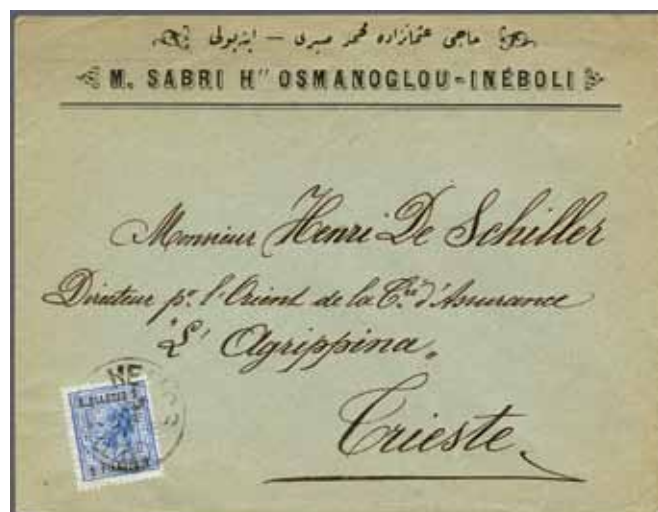 حاجی عثمانزاده محمد صبری — اینه‌بولی
M. SABRI H'' OSMANOGLOU - INÉBOLI
Monsieur Henri De Schiller
Directeur pr. l'Orient de la Cie. d'Assurance
"L'Agrippina„
Trieste
1 PIASTER 1